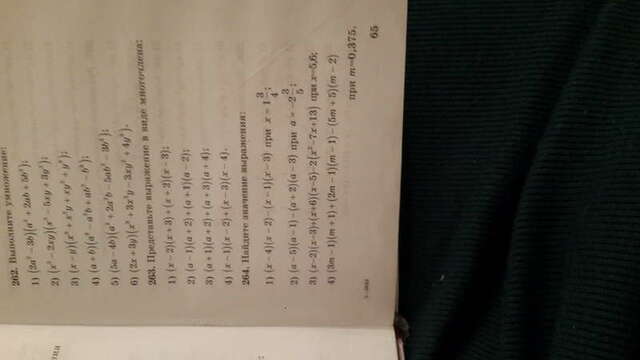 262. Выполните умножение:
1) (2a² − 3b)(a² + 2ab + 5b²);
2) (x² − 2xy)(x² − 5xy + 3y²);
3) (x − y)(x³ + x²y + xy² + y³);
4) (a + b)(a³ − a²b + ab² − b³);
5) (5a − 4b)(a³ + 2a²b − 5ab² − 3b³);
6) (2x + 3y)(x³ + 3x²y − 3xy² + 4y³).
263. Представьте выражение в виде многочлена:
1) (x − 2)(x + 3) + (x + 2)(x − 3);
2) (a − 1)(a + 2) + (a + 1)(a − 2);
3) (a + 1)(a + 2) + (a + 3)(a + 4);
4) (x − 1)(x − 2) + (x − 3)(x − 4).
264. Найдите значение выражения:
1) (x − 4)(x − 2) − (x − 1)(x − 3) при x = 1 3/4;
2) (a − 5)(a − 1) − (a + 2)(a − 3) при a = −2 3/5;
3) (x−2)(x−3)+(x+6)(x−5)−2(x²−7x+13) при x=5,6;
4) (3m − 1)(m + 1) + (2m − 1)(m − 1) − (5m + 5)(m − 2)
при m=0,375.
65